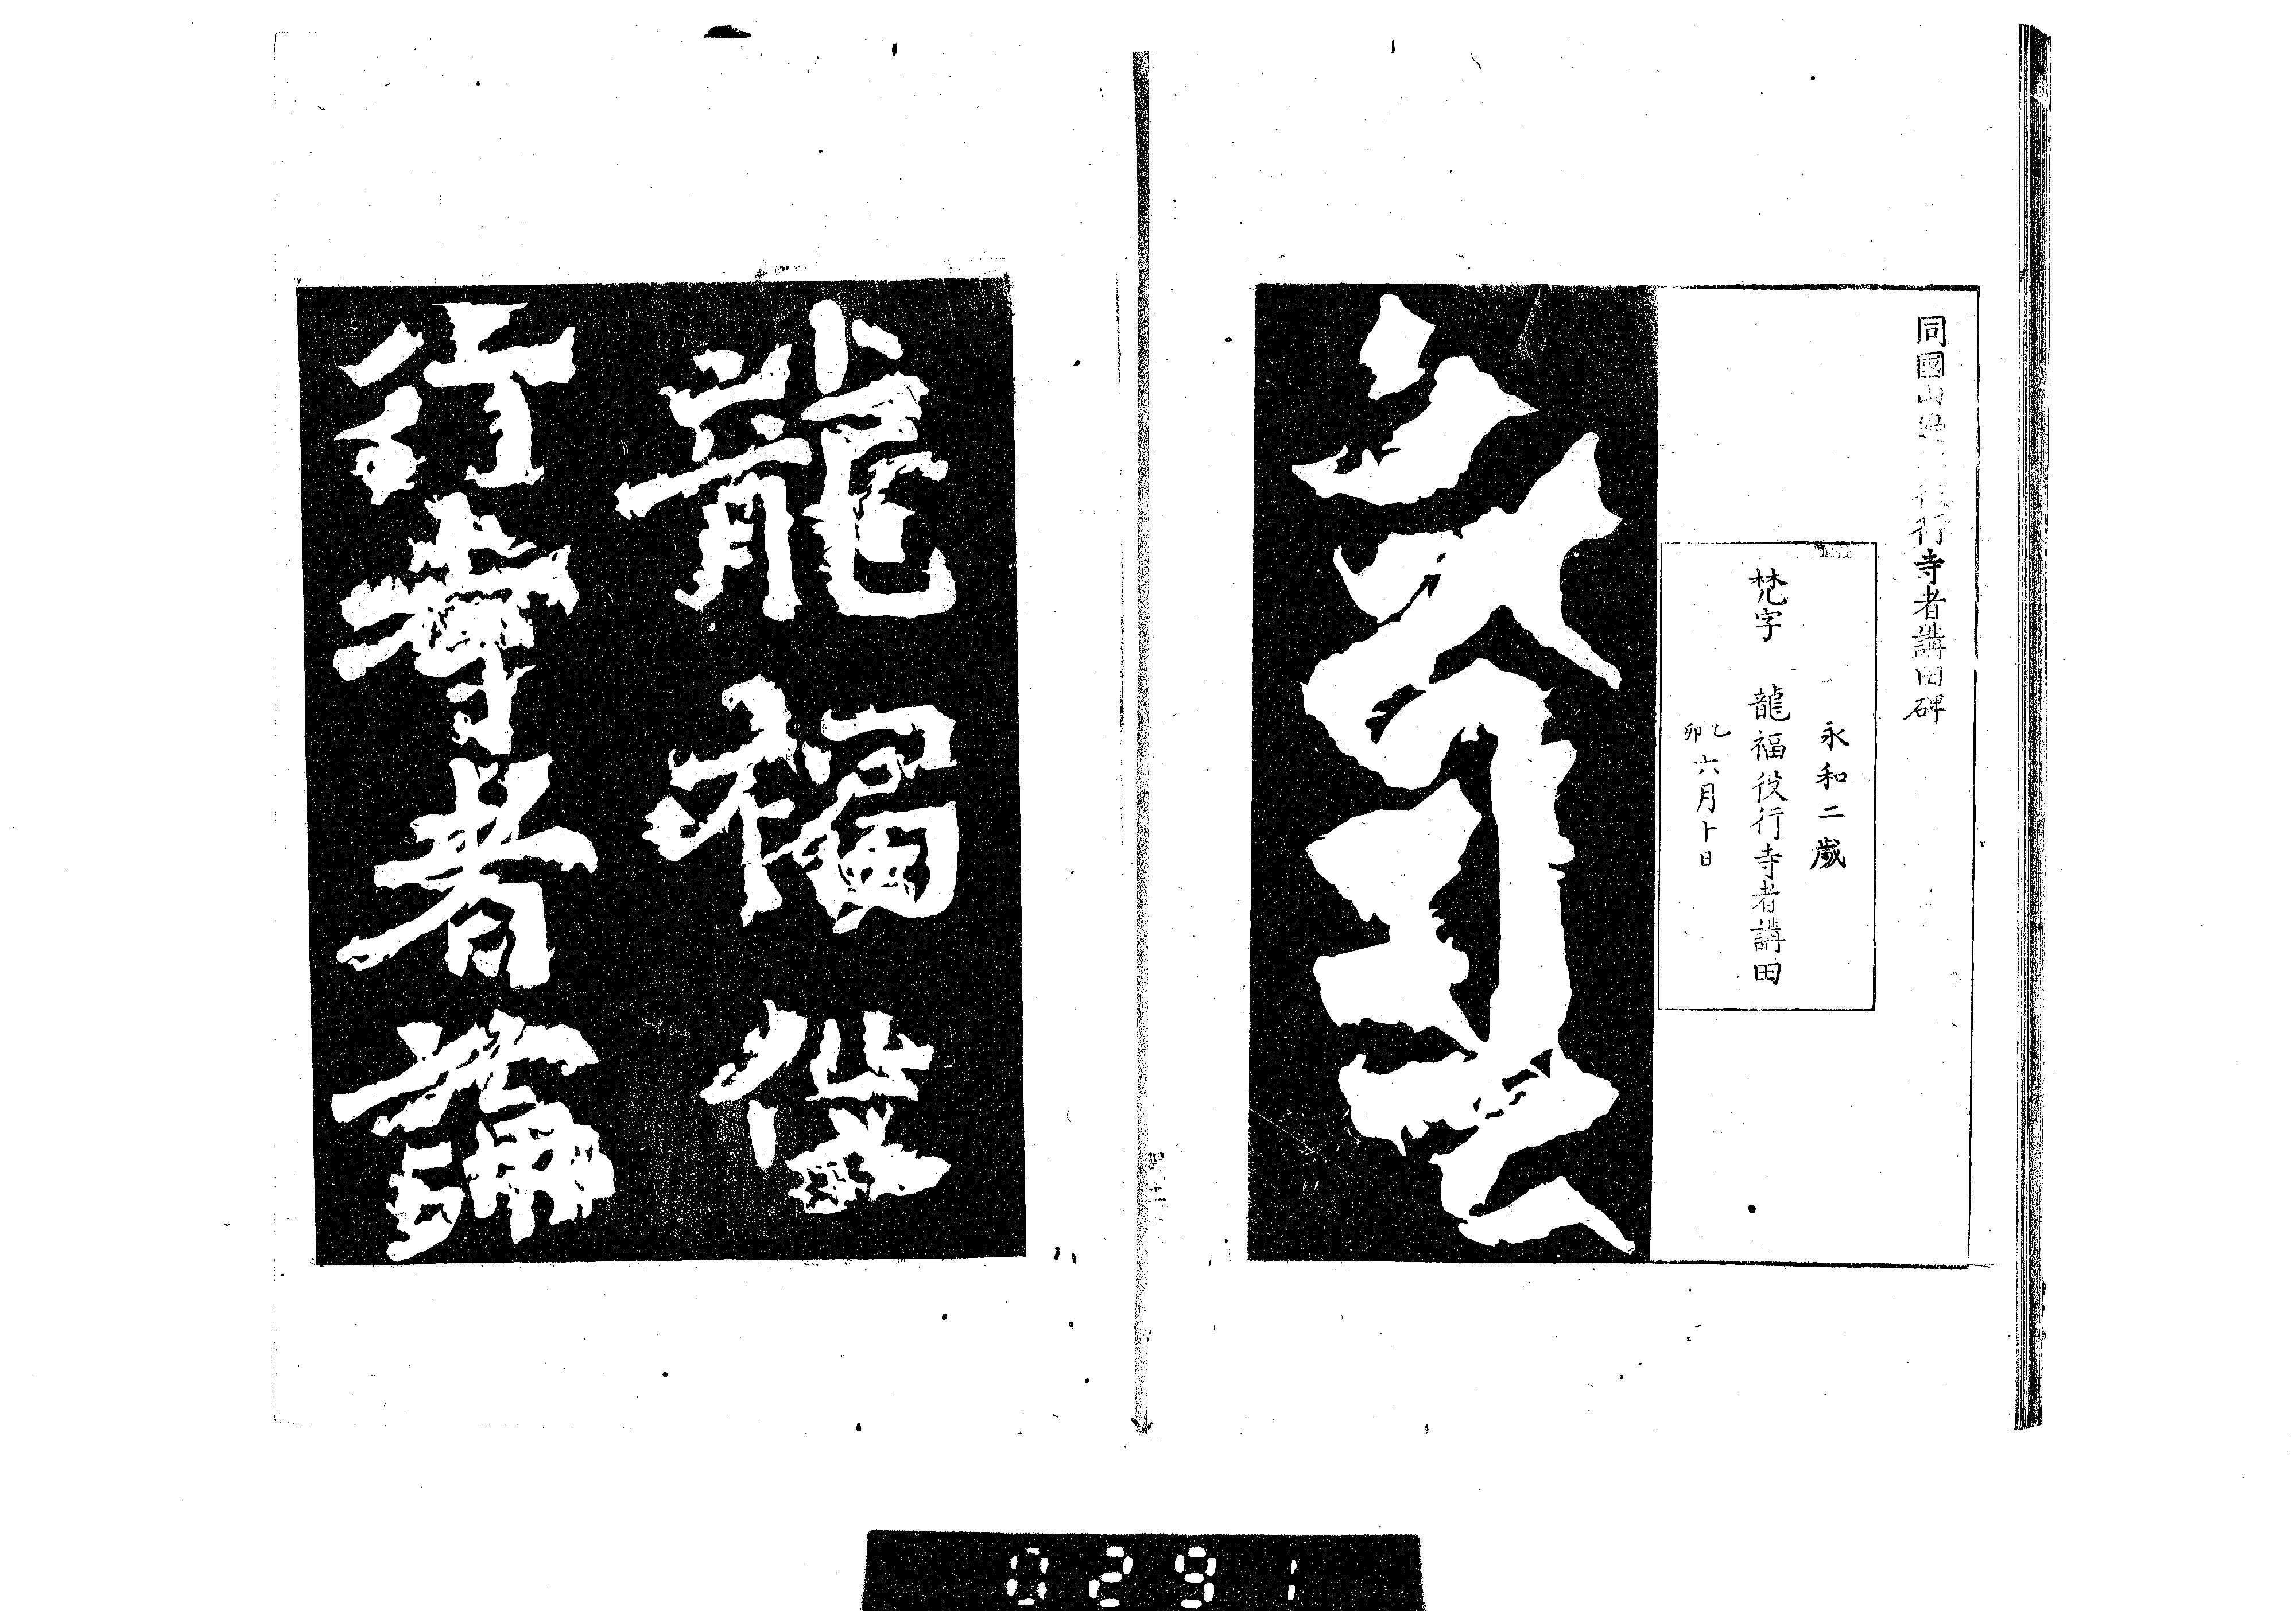 同國山邊
役行寺者講田碑
永和二歲
梵字 龍福役行寺者講田
乙卯六月十日
龍福役
行寺者講
0291